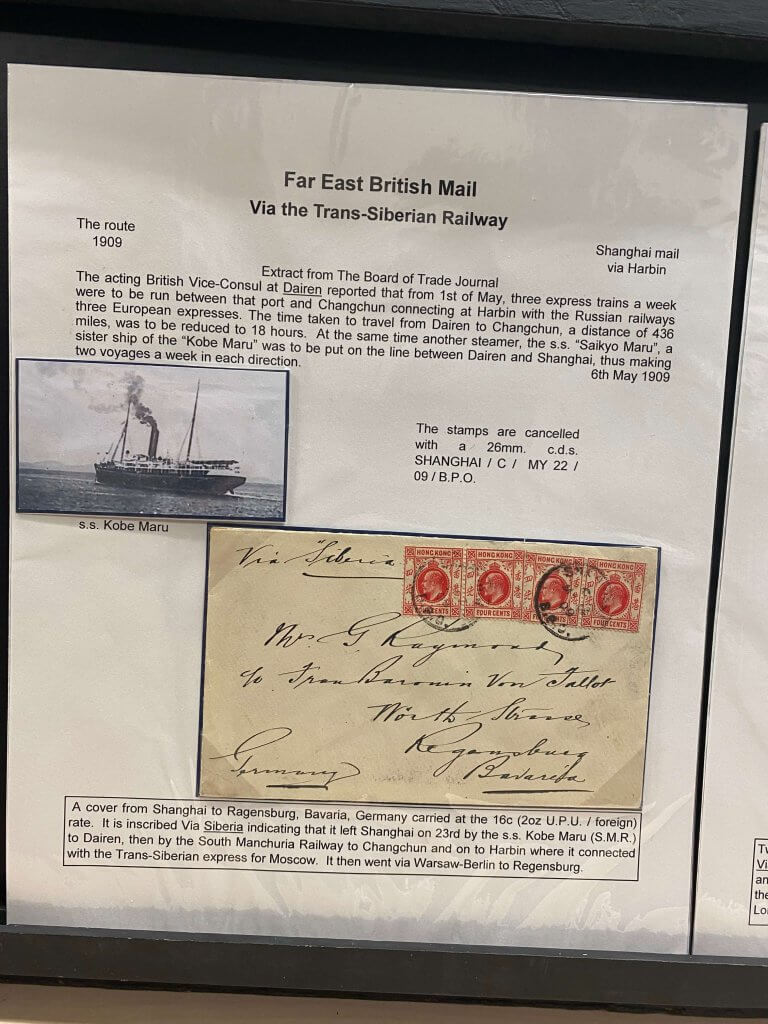 Far East British Mail
Via the Trans-Siberian Railway
The route
1909
Shanghai mail
via Harbin
Extract from The Board of Trade Journal
The acting British Vice-Consul at Dairen reported that from 1st of May, three express trains a week
were to be run between that port and Changchun connecting at Harbin with the Russian railways
three European expresses. The time taken to travel from Dairen to Changchun, a distance of 436
miles, was to be reduced to 18 hours. At the same time another steamer, the s.s. “Saikyo Maru”, a
sister ship of the “Kobe Maru” was to be put on the line between Dairen and Shanghai, thus making
two voyages a week in each direction.
6th May 1909
The stamps are cancelled
with a 26mm. c.d.s.
SHANGHAI / C / MY 22 /
09 / B.P.O.
s.s. Kobe Maru
Via "Siberia
HONG KONG HONG KONG HONG KONG HONG KONG
FOUR CENTS FOUR CENTS FOUR CENTS
B.P.O.
Mrs G Raymond
c/o Frau Baronin Von Tallot
Wörth Strasse
Regensburg
Germany
Bavaria
A cover from Shanghai to Ragensburg, Bavaria, Germany carried at the 16c (2oz U.P.U. / foreign)
rate. It is inscribed Via Siberia indicating that it left Shanghai on 23rd by the s.s. Kobe Maru (S.M.R.)
to Dairen, then by the South Manchuria Railway to Changchun and on to Harbin where it connected
with the Trans-Siberian express for Moscow. It then went via Warsaw-Berlin to Regensburg.
Vi
an
the
Lo